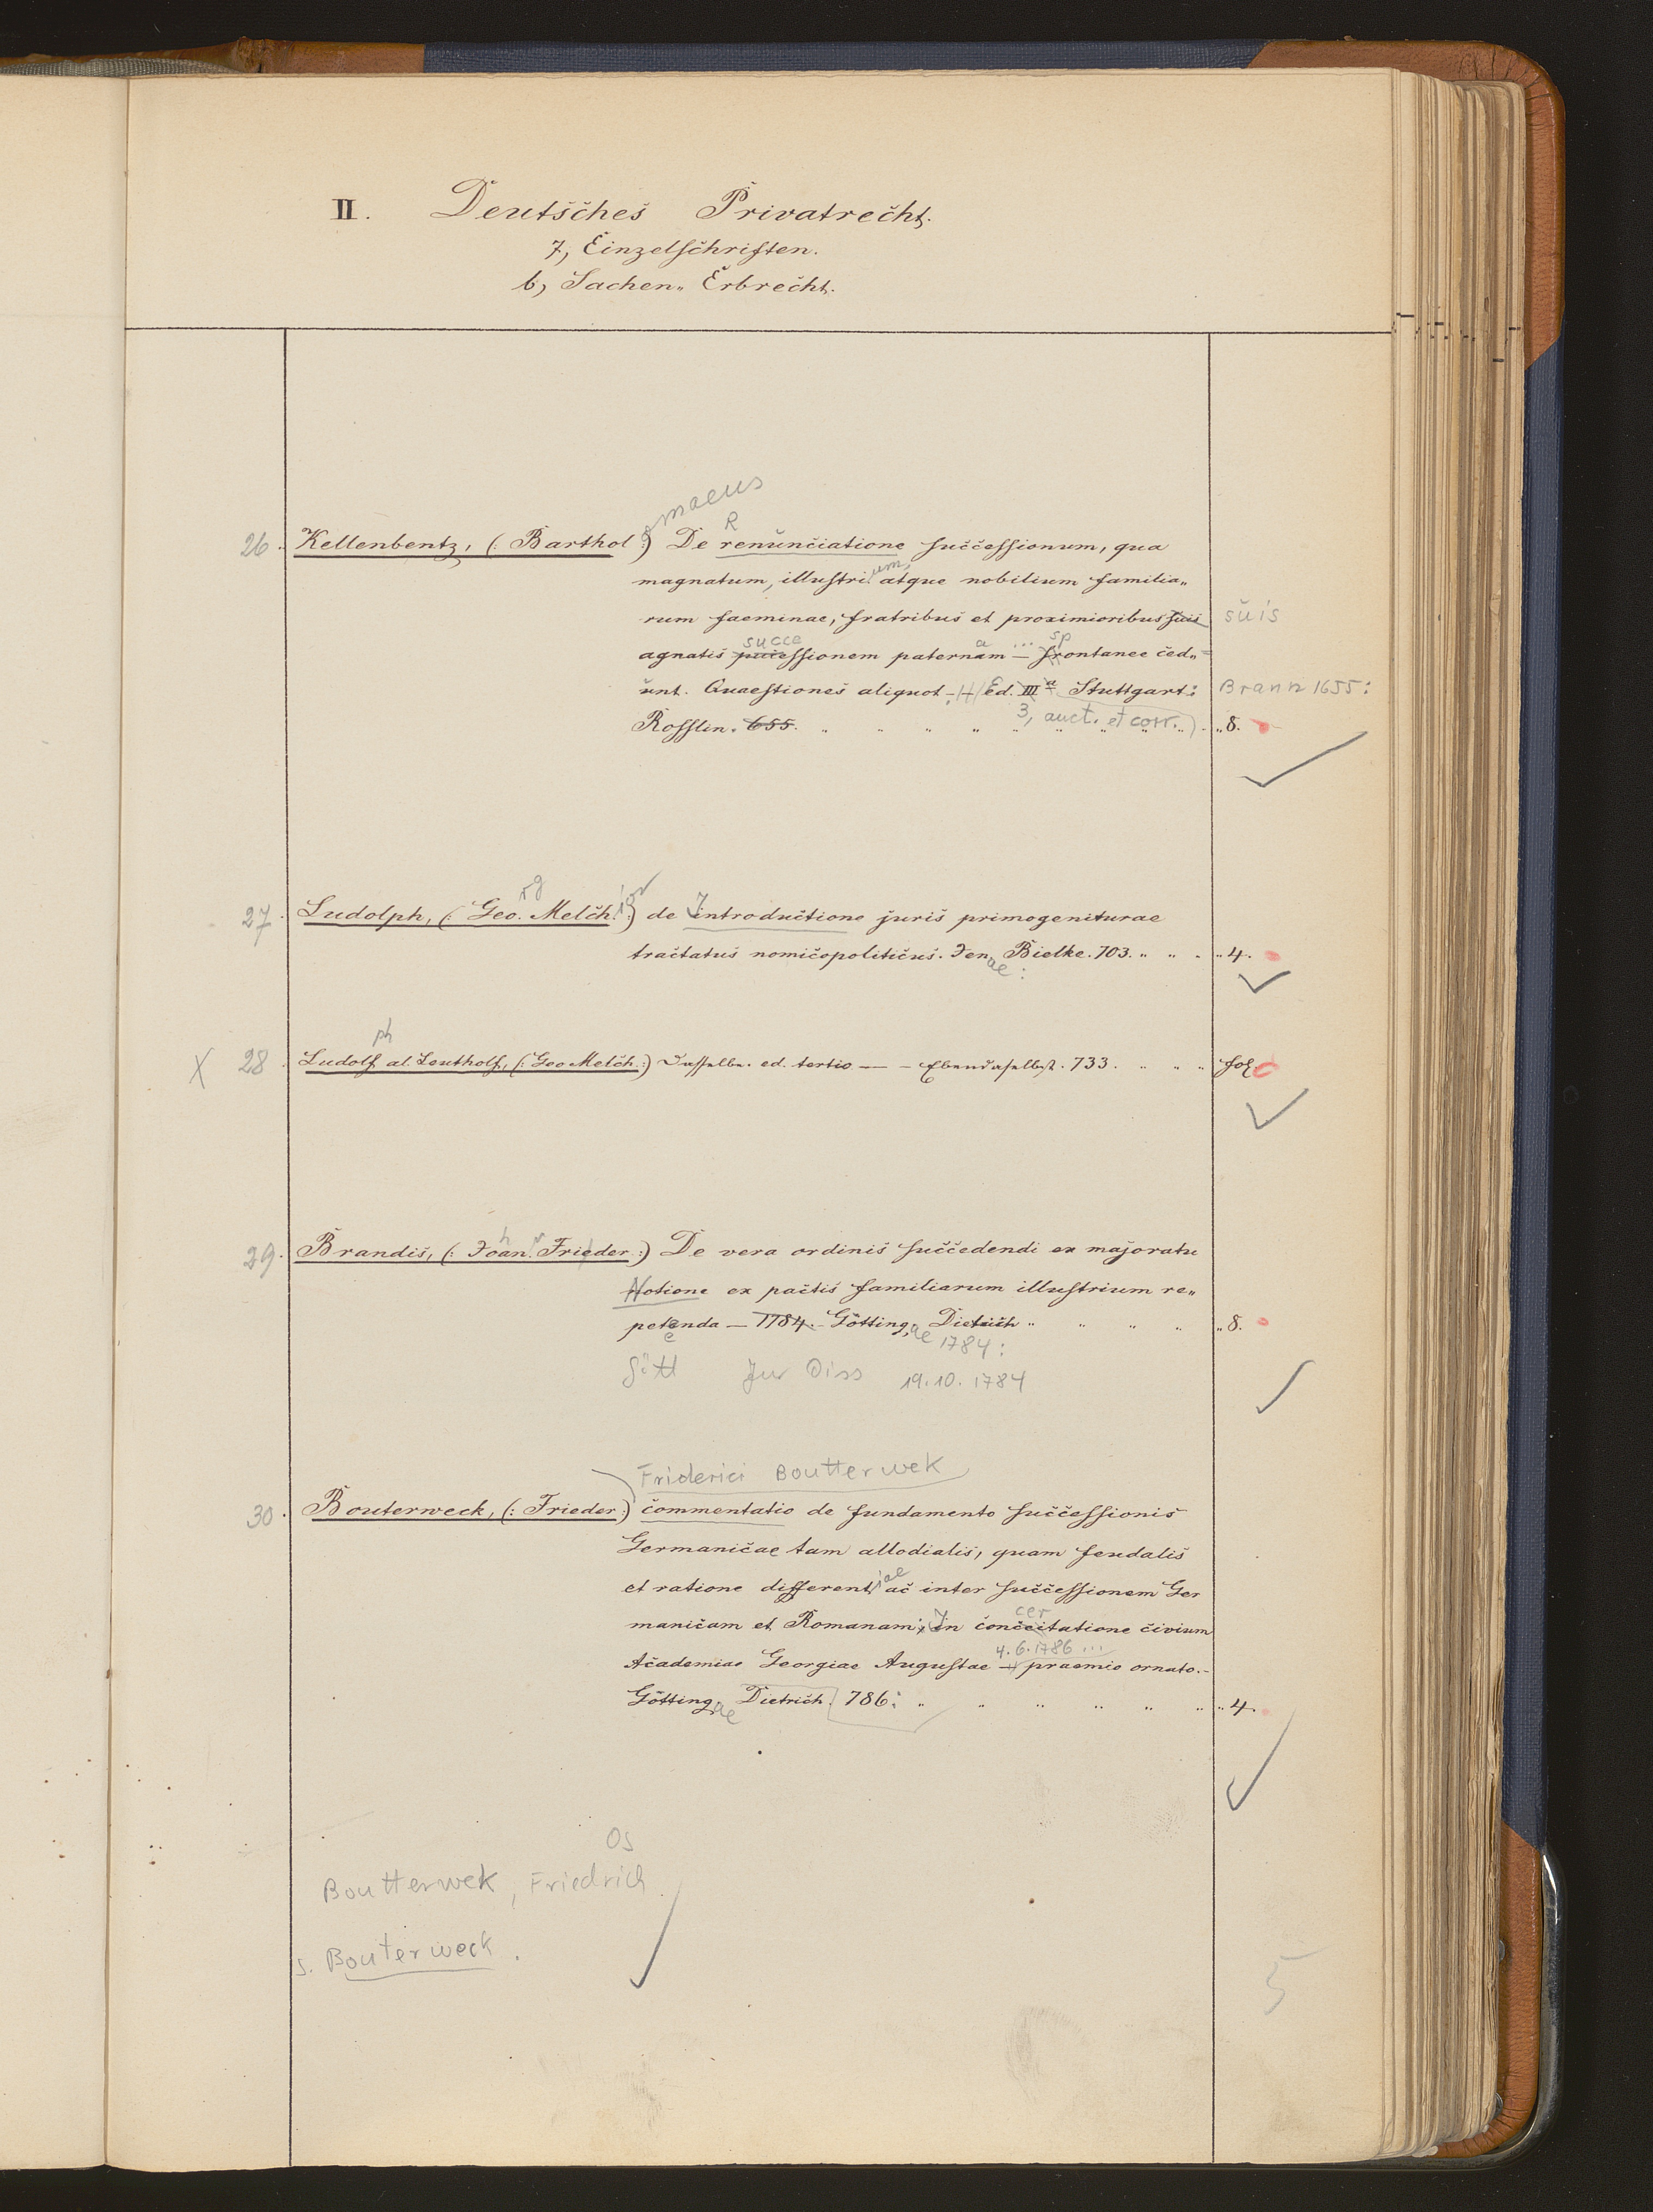 II. Deutsches Privatrecht.
7, Einzelschriften.
b, Sachen „ Erbrecht.
maeus
R
26. Kellenbentz, (: Barthol :) De renunciatione successionum, qua
um
magnatum, illustri atque nobilium familia„
rum faeminae, fratribus et proximioribus suis suis
succe a ... sp
agnatis pucessionem paternam — frontanee ced„
unt. Quaestiones aliquot — Ed. III a Stuttgart: Brann 1655:
3, auct. et corr.)
Rosslin. 655. „ „ „ „ „ „ „ „ 8.
rg ior
27. Ludolph, (: Geo. Melch. :) de Introductione juris primogeniturae
tractatus nomicopoliticus. Jenae: Bielke. 703. „ „ „ 4.
ph
X 28. Ludolf al. Leutholf, (: Geo Melch. :) Dasselbe. ed. tertio — – Ebendaselbst. 733. „ „ „ fol.
h r
29. Brandis, (: Joan. Frieder. :) De vera ordinis succedendi ex majoratu
Notione ex pactis familiarum illustrium re„
petenda — 1784. – Götting. Dietrich „ „ „ „ „ 8.
e ae 1784:
Gött Jur Diss 19.10.1784
Friderici Boutterwek
30. Bouterweck, (: Frieder :) commentatio de fundamento successionis
Germanicae tam allodialis, quam feudalis
iae
et ratione different ac inter successionem Ger
cer
manicam et Romanam; In conceitatione civium
4.6.1786 ...
Academiae Georgiae Augustae — praemio ornato. –
Götting.ae Dietrich. 786: „ „ „ „ „ „ „ 4.
Os
Boutterwek, Friedrich.
s. Bouterweck.
5